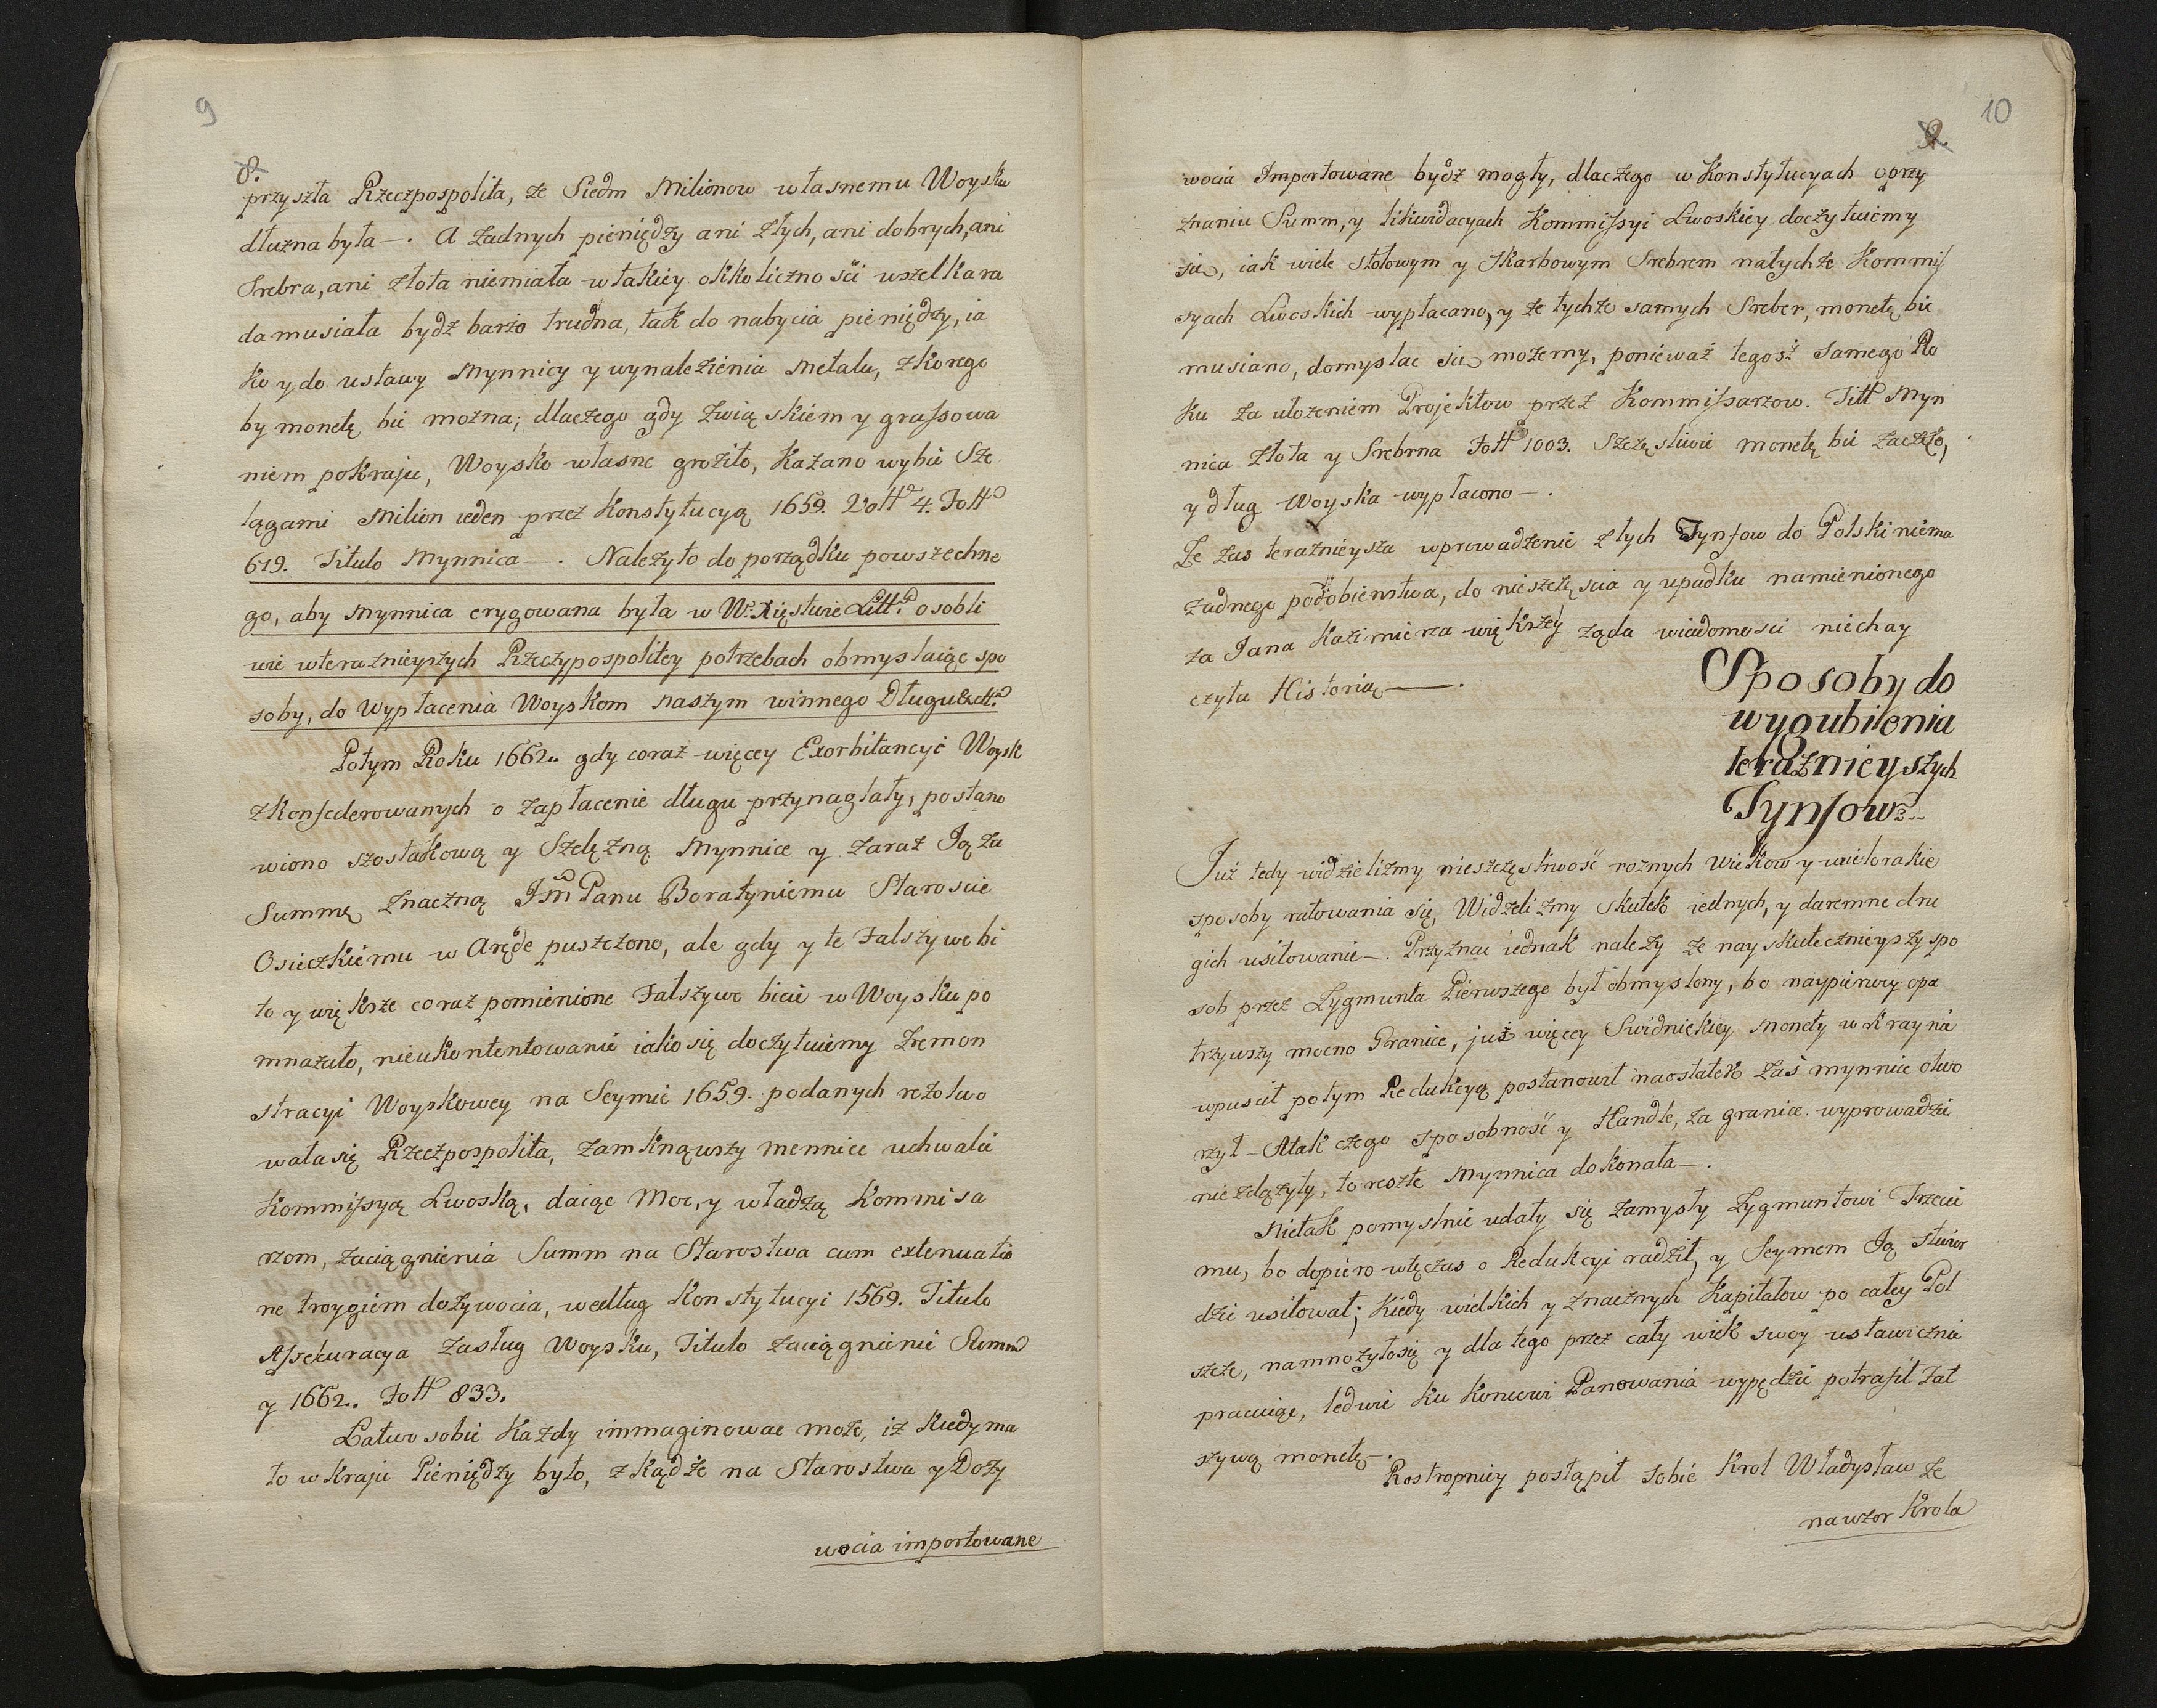 9
8.
przyszła Rzeczpospolita, że Siedm Milionow własnemu Woysku
dłużna była—. A żadnych pieniędzy ani złych, ani dobrych, ani
Srebra, ani złota niemiała w takiey okkoliczności wszelka ra
da musiała bydź barzo trudna, tak do nabycia pieniędzy, ia
ko y do ustawy Mynnicy y wynalezienia Metalu, z korego
by monetę bić można; dlaczego gdy związkiem y grassowa
niem po kraju, Woysko własne groziło, kazano wybić Sze
lągami Milion ieden przez Konstytucyą 1659. Voll 4. Foll
619. Titulo Mynnica—. Należyło do porządku powszechne
go, aby Mynnica erygowana była w W. Xięstwie Litt. osobli
wie w teraznieyszych Rzeczypospolitey potrzebach obmyslaiąc spo
soby, do wypłacenia Woyskom naszym winnego Długu &ctt.
Potym Roku 1662. gdy coraz więcey Exorbitancyie Woysk
zkonfederowanych o zapłacenie długu przynaglały, postano
wiono szostakową y Szelężną Mynnice y zaraz Ją za
Summę znaczną Jm Panu Boratyniemu Staroscie
Osieczkiemu w Aręde puszczono, ale gdy y te Falszywe bi
to y większe coraz pomienione Falszywe bicie w Woysku po
mnażało, nieukontentowanie iako się doczytuiemy z remon
stracyi Woyskowey na Seymie 1659. podanych rezolwo
wała się Rzeczpospolita, zamknąwszy mennice uchwalić
Kommissyą Lwoską, daiąc Moc, y władzą Kommisa
rzom, zaciągnienia Summ na Starostwa cum extenuatio
ne troygiem dożywocia, według Konstytucyi 1569. Titulo
Assekuracya zasług Woysku, Titulo zaciągnienie Summ
y 1662. Foll 833.
Łatwo sobie Każdy immaginować może, iż kiedy ma
ło w kraju Pieniędzy było, z kądże na Starostwa y Doży
wocia importowane
10
9.
wocia Importowane bydź mogły, dlaczego w Konstytucyach o przy
znaniu Summ, y likwidacyach Kommissyi Lwoskiey doczytuiemy
się, iak wiele stołowym y Skarbowym Srebrem na tychże Kommis
syach Lwoskich wypłacano, y że tychże samych Sreber, monetę bić
musiano, domyslać się możemy, ponieważ tegosż samego Ro
ku za ułożeniem Projektow przez Kommissarzow. Titl Myn
nica Złota y Srebrna Foll 1003. Szczęsliwie monetę bić zaczęto,
y dług Woyska wypłacono—.
Że zas teraznieysza wprowadzenie złych Tynfow do Polski niema
żadnego podobienstwa, do nieszczęscia y upadku namienionego
za Jana Kazimierza większey ząda wiadomosci niechay
czyta Historią—.
Sposoby do
wygubienia
teraznieyszych
Tynfow.
Już tedy widzielizmy nieszczęsliwość roznych wiekow y wielorakie
sposoby ratowania się, Widzelizmy skutek iednych, y daremne dru
gich usiłowanie—. Przyznać iednak należy że nayskutecznieyszy spo
sob przez Zygmunta Pierwszego był obmyslony, bo naypierwiy opa
trzywszy mocno Granice, już więcey Swidnickiey monety w kray nie
wpuscił potym Redukcyą postanowił naostatek zaś mynnice otwo
rzył— A tak czego sposobność y Handle, za granice wyprowadzić
nie zdążyły, to resztę Mynnica dokonała—.
Nietak pomyslnie udały się zamysły Zygmuntowi Trzecie
mu, bo dopiero wtęczas o Redukcyi radził, y Seymem Ją stwier
dzić usiłował; kiedy wielkich y znacznych Kapitałow po całey Pol
szcze, namnożyło się y dla tego przez cały wiek swoy ustawicznie
pracuiąc, ledwie ku Koncowi Panowania wypędzić potrafił Fał
szywą monetę—.
Rostropniey postąpił sobie Krol Władysław że
na wzor Krola